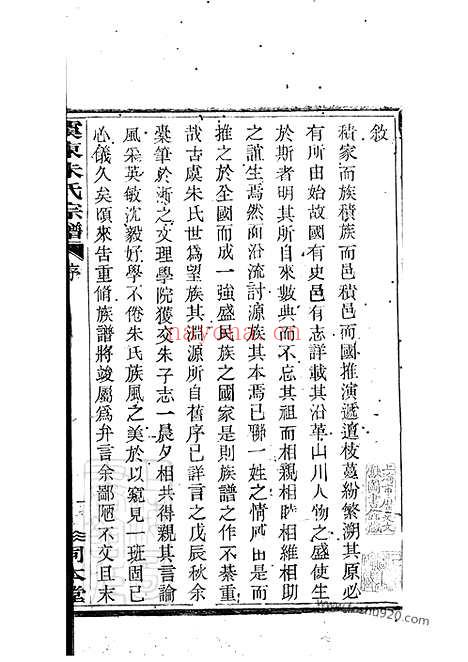 敘
積家而族積族而邑積邑而國推演遞邅枝蔓紛繁溯其原必
有所由始故國有史邑有志詳載其沿革山川人物之盛使生
於斯者明其所自來數典而不忘其祖而相親相睦相維相助
之誼生焉然而沿流討源族其本焉已聯一姓之情由是而
推之於全國而成一強盛民族之國家是則族譜之作不綦重
哉古虞朱氏世爲望族其淵源所自舊序已詳言之戊辰秋余
橐筆於浙之文理學院獲交朱子志一晨夕相共得親其言論
風采英敏沈毅好學不倦朱氏族風之美於以窺見一斑固已
心儀久矣頃來告重脩族譜將竣屬爲弁言余鄙陋不文且末
虞東朱氏宗譜
序
一
同本堂
nayona.cn
www.fozhu920.com